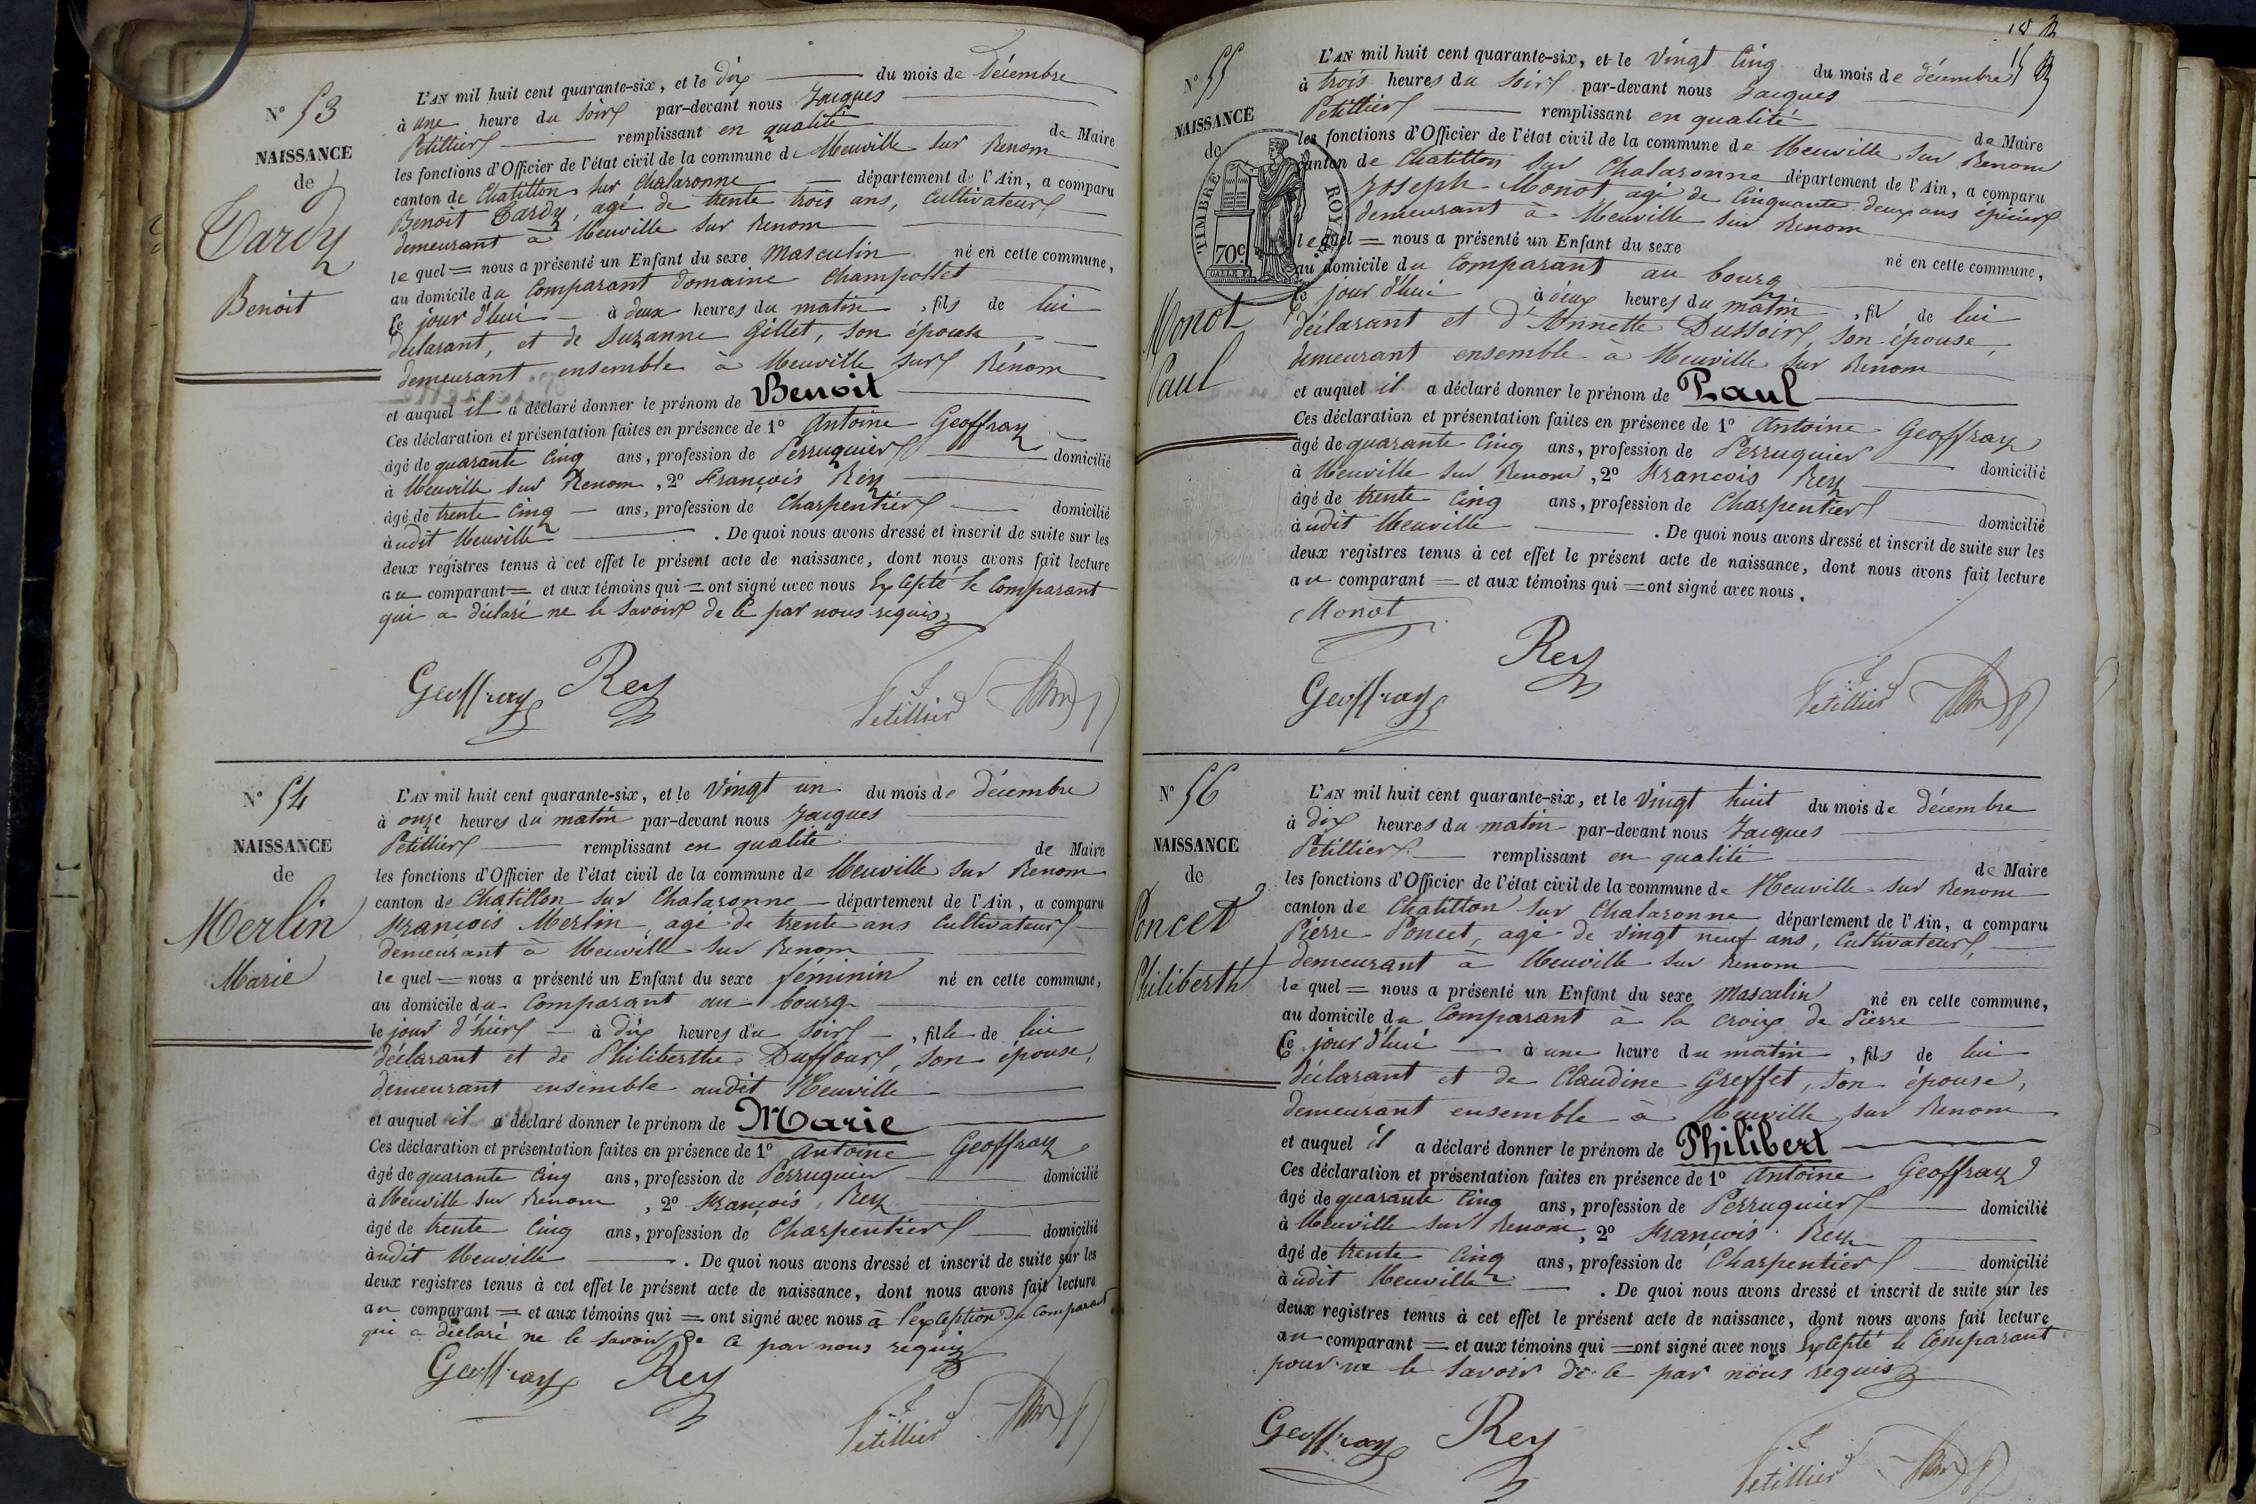 N° 53
NAISSANCE
de
Tardy
Benoit
L'AN mil huit cent quarante-six, et le dix du mois de Décembre
à une heure du soir par-devant nous Jacques
Petillier remplissant en qualité de Maire
les fonctions d'Officier de l'état civil de la commune de Neuville sur Renom
canton de Chatillon sur Chalaronne département de l'Ain, a comparu
Benoit Tardy, agé de trente trois ans, Cultivateur
demeurant à Neuville sur Renom
le quel = nous a présenté un Enfant du sexe Masculin né en cette commune,
au domicile du Comparant domaine Champollet
Ce jour d'hui à deux heures du matin, fils de lui
déclarant, et de Suzanne Gillet, son épouse,
demeurant ensemble à Neuville sur Renom
et auquel il a déclaré donner le prénom de Benoit
Ces déclaration et présentation faites en présence de 1° Antoine Geoffray
âgé de quarante Cinq ans, profession de Perruquier domicilié
à Neuville sur Renom, 2° François Rey
âgé de trente Cinq ans, profession de Charpentier domicilié
audit Neuville. De quoi nous avons dressé et inscrit de suite sur les
deux régistres tenus à cet effet le présent acte de naissance, dont nous avons fait lecture
au comparant = et aux témoins qui = ont signé avec nous Excepté le Comparant
qui a déclaré ne le savoir de Ce par nous requis
Geoffray Rey Petillier
N° 54
NAISSANCE
de
Merlin
Marie
L'AN mil huit cent quarante-six, et le Vingt un du mois de décembre
à onze heures du matin par-devant nous Jacques
Petillier remplissant en qualité de Maire
les fonctions d'Officier de l'état civil de la commune de Neuville sur Renom
canton de Chatillon sur Chalaronne département de l'Ain, a comparu
François Merlin, agé de trente ans Cultivateur
demeurant à Neuville sur Renom
le quel = nous a présenté un Enfant du sexe féminin né en cette commune,
au domicile du Comparant au bourg
le jour d'hier à dix heures du Soir, fille de lui
déclarant et de Philiberthe Duffour, son épouse,
demeurant ensemble audit Neuville
et auquel il a déclaré donner le prénom de Marie
Ces déclaration et présentation faites en présence de 1° Antoine Geoffray
âgé de quarante Cinq ans, profession de Perruquier domicilié
à Neuville sur Renom, 2° François Rey
âgé de trente Cinq ans, profession de Charpentier domicilié
audit Neuville. De quoi nous avons dressé et inscrit de suite sur les
deux registres tenus à cet effet le présent acte de naissance, dont nous avons fait lecture
au comparant = et aux témoins qui = ont signé avec nous à l'exception du Comparant
qui a déclaré ne le savoir de Ce par nous requis
Geoffray Rey Petillier
N° 55
NAISSANCE
de
Monot
Paul
TIMBRE ROYAL
70c.
L'AN mil huit cent quarante-six, et le Vingt Cinq du mois de décembre
à trois heures du soir par-devant nous Jacques
Petillier remplissant en qualité de Maire
les fonctions d'Officier de l'état civil de la commune de Neuville sur Renom
canton de Chatillon sur Chalaronne département de l'Ain, a comparu
Joseph Monot, agé de Cinquante deux ans épicier
demeurant à Neuville sur Renom
lequel = nous a présenté un Enfant du sexe né en cette commune,
au domicile du Comparant au bourg
Ce jour d'hui à deux heures du matin, fil de lui
déclarant et d'Annette Dussoir, son épouse,
demeurant ensemble à Neuville sur Renom
et auquel il a déclaré donner le prénom de Paul
Ces déclaration et présentation faites en présence de 1° Antoine Geoffray
âgé de quarante Cinq ans, profession de Perruquier domicilié
à Neuville sur Renom, 2° François Rey
âgé de trente Cinq ans, profession de Charpentier domicilié
audit Neuville. De quoi nous avons dressé et inscrit de suite sur les
deux registres tenus à cet effet le présent acte de naissance, dont nous avons fait lecture
au comparant = et aux témoins qui = ont signé avec nous.
Monot
Rey
Geoffray Petillier
N° 56
NAISSANCE
de
Poncet
Philiberth
L'AN mil huit cent quarante-six, et le Vingt huit du mois de décembre
à dix heures du matin par-devant nous Jacques
Petillier remplissant en qualité de Maire
les fonctions d'Officier de l'état civil de la commune de Neuville sur Renom
canton de Chatillon sur Chalaronne département de l'Ain, a comparu
Pierre Poncet, agé de vingt neuf ans, Cultivateur,
demeurant à Neuville sur Renom
le quel = nous a présenté un Enfant du sexe Masculin né en cette commune,
au domicile du Comparant à la croix de Pierre
Ce jour d'hui à une heure du matin, fils de lui
déclarant et de Claudine Greffet, son épouse,
demeurant ensemble à Neuville sur Renom
et auquel il a déclaré donner le prénom de Philibert
Ces déclaration et présentation faites en présence de 1° Antoine Geoffray
âgé de quarante Cinq ans, profession de Perruquier domicilié
à Neuville sur Renom, 2° François Rey
âgé de trente Cinq ans, profession de Charpentier domicilié
audit Neuville. De quoi nous avons dressé et inscrit de suite sur les
deux registres tenus à cet effet le présent acte de naissance, dont nous avons fait lecture
au comparant = et aux témoins qui = ont signé avec nous Excepté le Comparant
pour ne le savoir de Ce par nous requis
Geoffray Rey Petillier